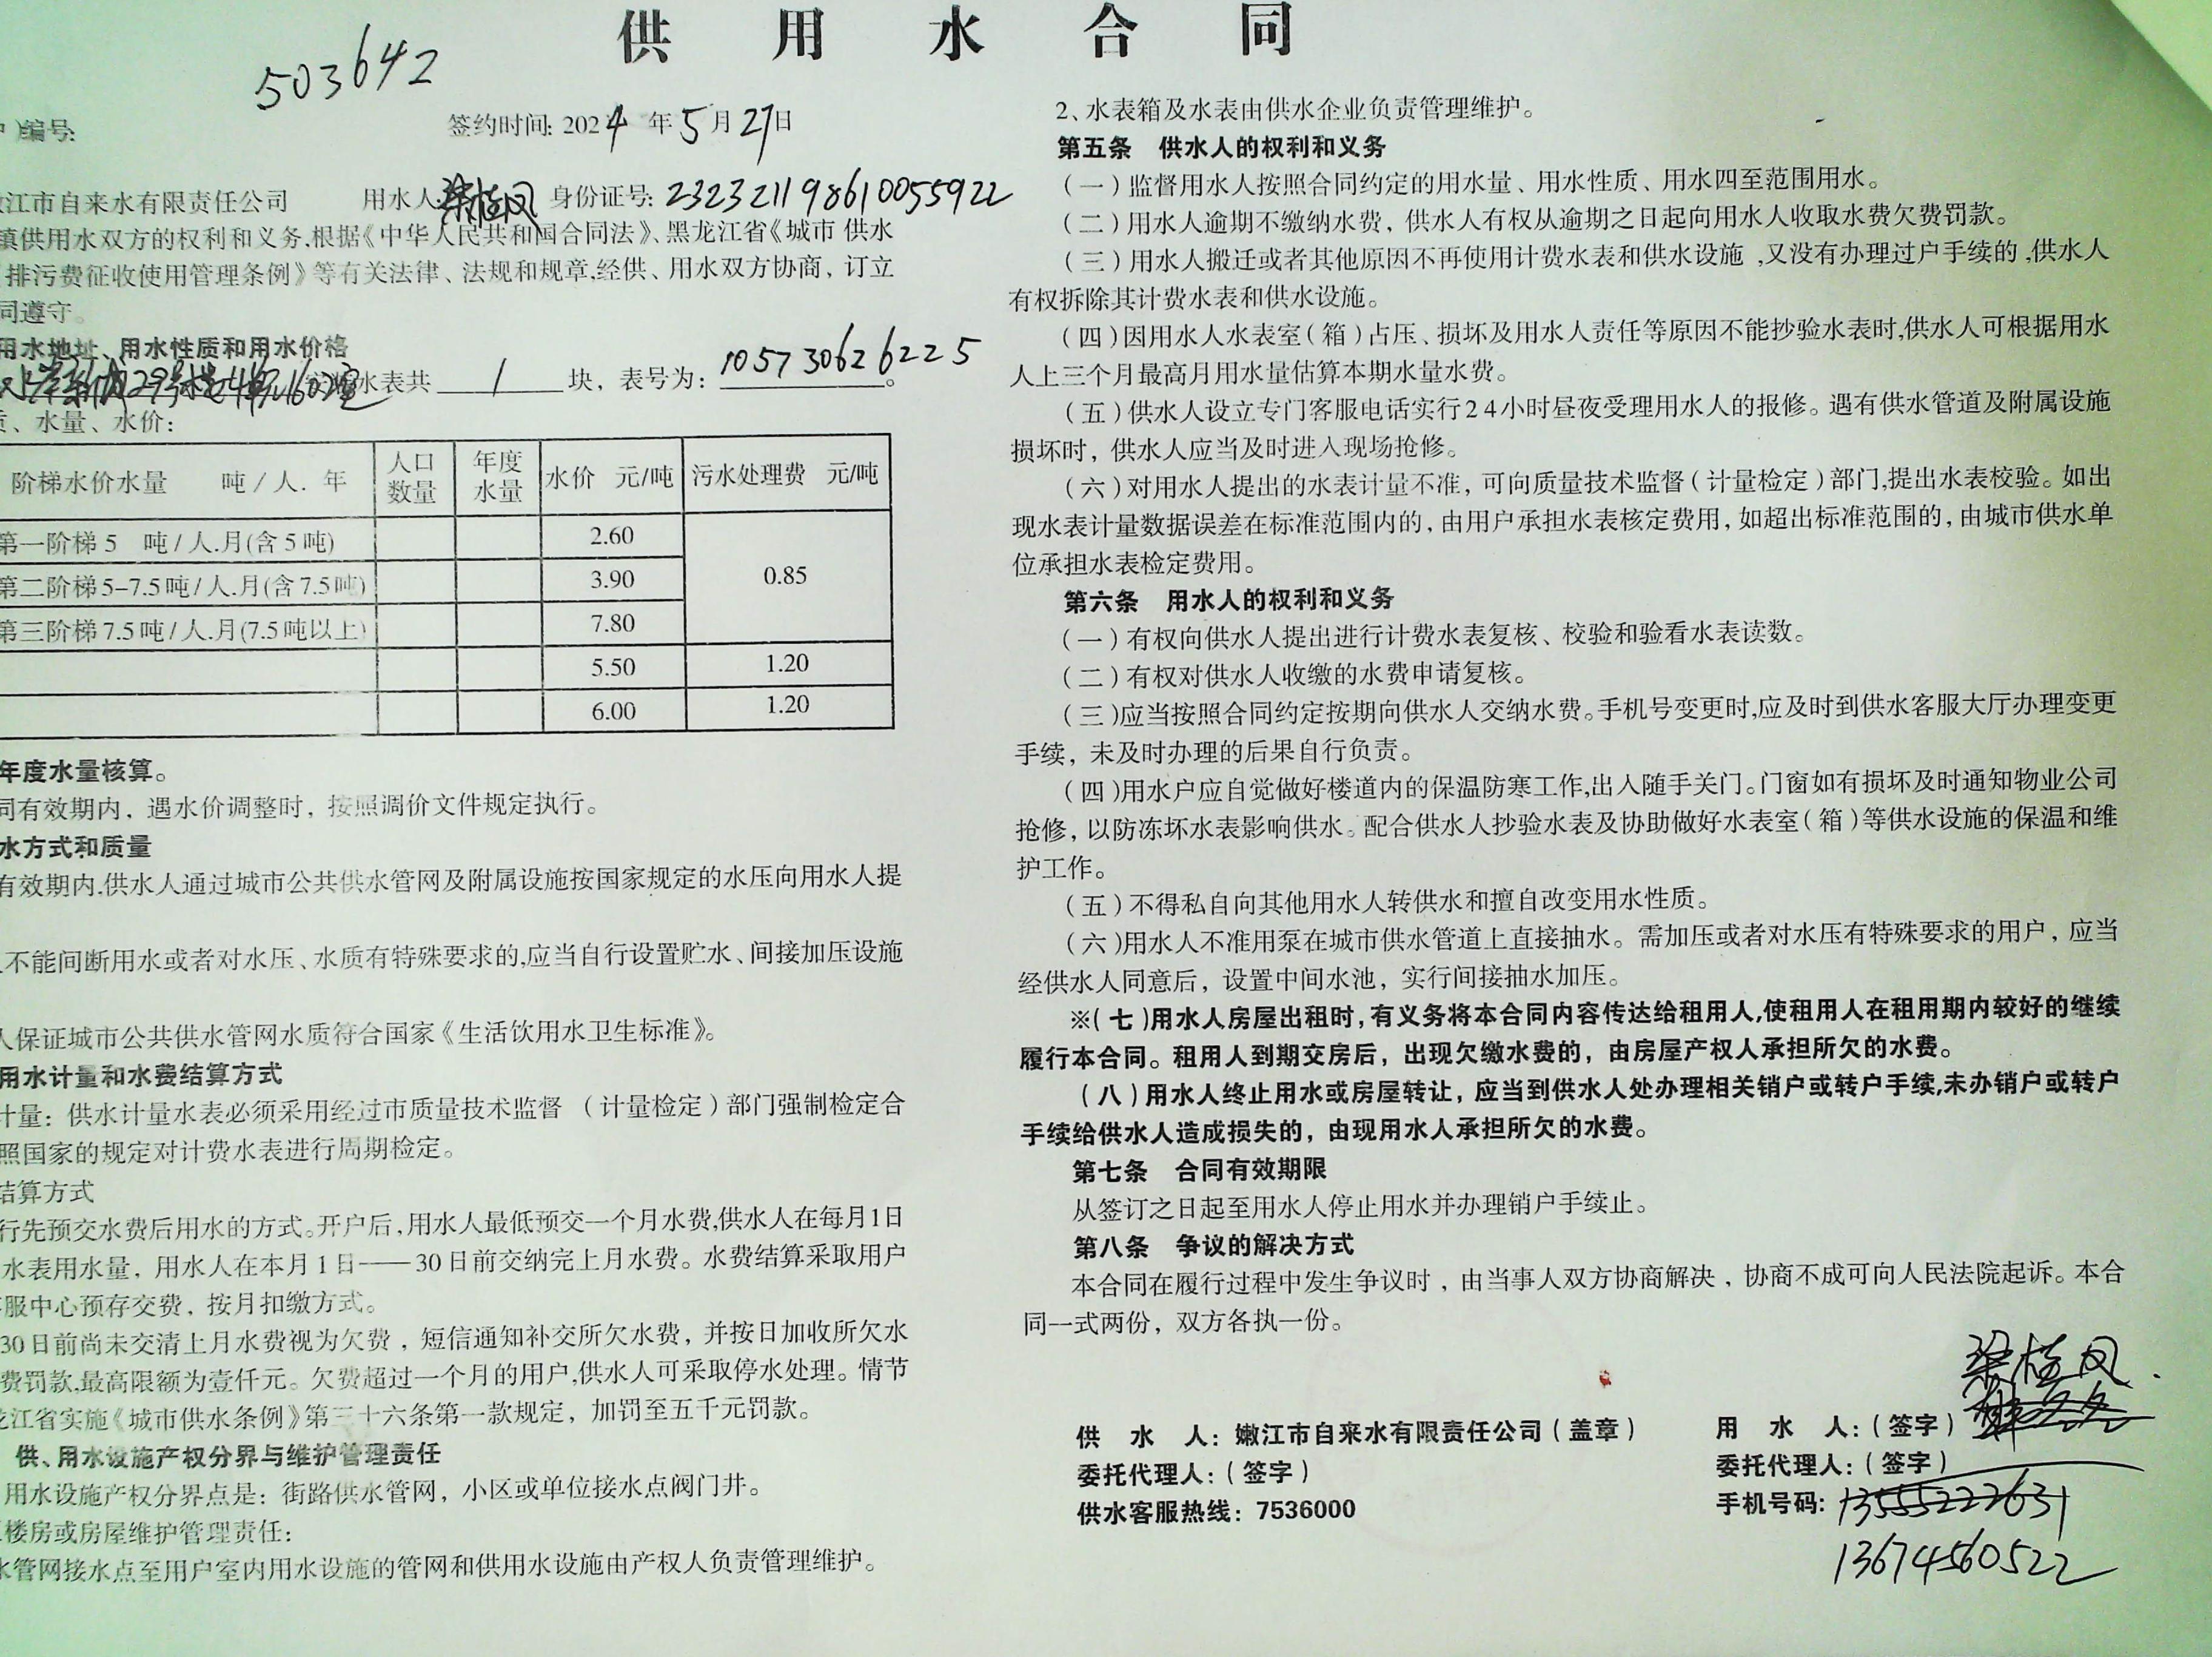 供用水合同
503642
)编号:
签约时间: 2024年5月27日
江市自来水有限责任公司 用水人 梁桂凤 身份证号: 232321198610055922
镇供用水双方的权利和义务,根据《中华人民共和国合同法》、黑龙江省《城市 供水
排污费征收使用管理条例》等有关法律、法规和规章,经供、用水双方协商, 订立
同遵守。
用水地址、用水性质和用水价格
29号楼4单元1602室 水表共 1 块, 表号为: 105730626225。
、水量、水价:
阶梯水价水量 吨/人. 年 人口数量 年度水量 水价 元/吨 污水处理费 元/吨
第一阶梯 5 吨/人.月(含 5 吨) 2.60 0.85
第二阶梯 5-7.5 吨/人.月(含 7.5 吨) 3.90
第三阶梯 7.5 吨/人.月(7.5 吨以上) 7.80
5.50 1.20
6.00 1.20
年度水量核算。
同有效期内, 遇水价调整时, 按照调价文件规定执行。
水方式和质量
有效期内,供水人通过城市公共供水管网及附属设施按国家规定的水压向用水人提
不能间断用水或者对水压、水质有特殊要求的,应当自行设置贮水、间接加压设施
人保证城市公共供水管网水质符合国家《生活饮用水卫生标准》。
用水计量和水费结算方式
计量: 供水计量水表必须采用经过市质量技术监督 (计量检定)部门强制检定合
照国家的规定对计费水表进行周期检定。
结算方式
行先预交水费后用水的方式。开户后,用水人最低预交一个月水费,供水人在每月1日
水表用水量, 用水人在本月 1 日——30 日前交纳完上月水费。水费结算采取用户
服中心预存交费, 按月扣缴方式。
30 日前尚未交清上月水费视为欠费, 短信通知补交所欠水费, 并按日加收所欠水
费罚款,最高限额为壹仟元。欠费超过一个月的用户,供水人可采取停水处理。情节
江省实施《城市供水条例》第三十六条第一款规定, 加罚至五千元罚款。
供、用水设施产权分界与维护管理责任
用水设施产权分界点是: 街路供水管网, 小区或单位接水点阀门井。
楼房或房屋维护管理责任:
水管网接水点至用户室内用水设施的管网和供用水设施由产权人负责管理维护。
2、水表箱及水表由供水企业负责管理维护。
第五条 供水人的权利和义务
(一)监督用水人按照合同约定的用水量、用水性质、用水四至范围用水。
(二)用水人逾期不缴纳水费, 供水人有权从逾期之日起向用水人收取水费欠费罚款。
(三)用水人搬迁或者其他原因不再使用计费水表和供水设施 ,又没有办理过户手续的 ,供水人
有权拆除其计费水表和供水设施。
(四)因用水人水表室(箱)占压、损坏及用水人责任等原因不能抄验水表时,供水人可根据用水
人上三个月最高月用水量估算本期水量水费。
(五)供水人设立专门客服电话实行24小时昼夜受理用水人的报修。遇有供水管道及附属设施
损坏时, 供水人应当及时进入现场抢修。
(六)对用水人提出的水表计量不准, 可向质量技术监督(计量检定)部门,提出水表校验。如出
现水表计量数据误差在标准范围内的, 由用户承担水表核定费用, 如超出标准范围的, 由城市供水单
位承担水表检定费用。
第六条 用水人的权利和义务
(一)有权向供水人提出进行计费水表复核、校验和验看水表读数。
(二)有权对供水人收缴的水费申请复核。
(三)应当按照合同约定按期向供水人交纳水费。手机号变更时,应及时到供水客服大厅办理变更
手续, 未及时办理的后果自行负责。
(四)用水户应自觉做好楼道内的保温防寒工作,出入随手关门。门窗如有损坏及时通知物业公司
抢修, 以防冻坏水表影响供水。配合供水人抄验水表及协助做好水表室(箱)等供水设施的保温和维
护工作。
(五)不得私自向其他用水人转供水和擅自改变用水性质。
(六)用水人不准用泵在城市供水管道上直接抽水。需加压或者对水压有特殊要求的用户, 应当
经供水人同意后, 设置中间水池, 实行间接抽水加压。
※(七)用水人房屋出租时, 有义务将本合同内容传达给租用人,使租用人在租用期内较好的继续
履行本合同。租用人到期交房后, 出现欠缴水费的, 由房屋产权人承担所欠的水费。
(八)用水人终止用水或房屋转让, 应当到供水人处办理相关销户或转户手续,未办销户或转户
手续给供水人造成损失的, 由现用水人承担所欠的水费。
第七条 合同有效期限
从签订之日起至用水人停止用水并办理销户手续止。
第八条 争议的解决方式
本合同在履行过程中发生争议时, 由当事人双方协商解决, 协商不成可向人民法院起诉。本合
同一式两份, 双方各执一份。
梁桂凤
供 水 人: 嫩江市自来水有限责任公司(盖章) 用 水 人: (签字)
委托代理人: (签字) 委托代理人: (签字)
供水客服热线: 7536000 手机号码: 13555222631
13674560522